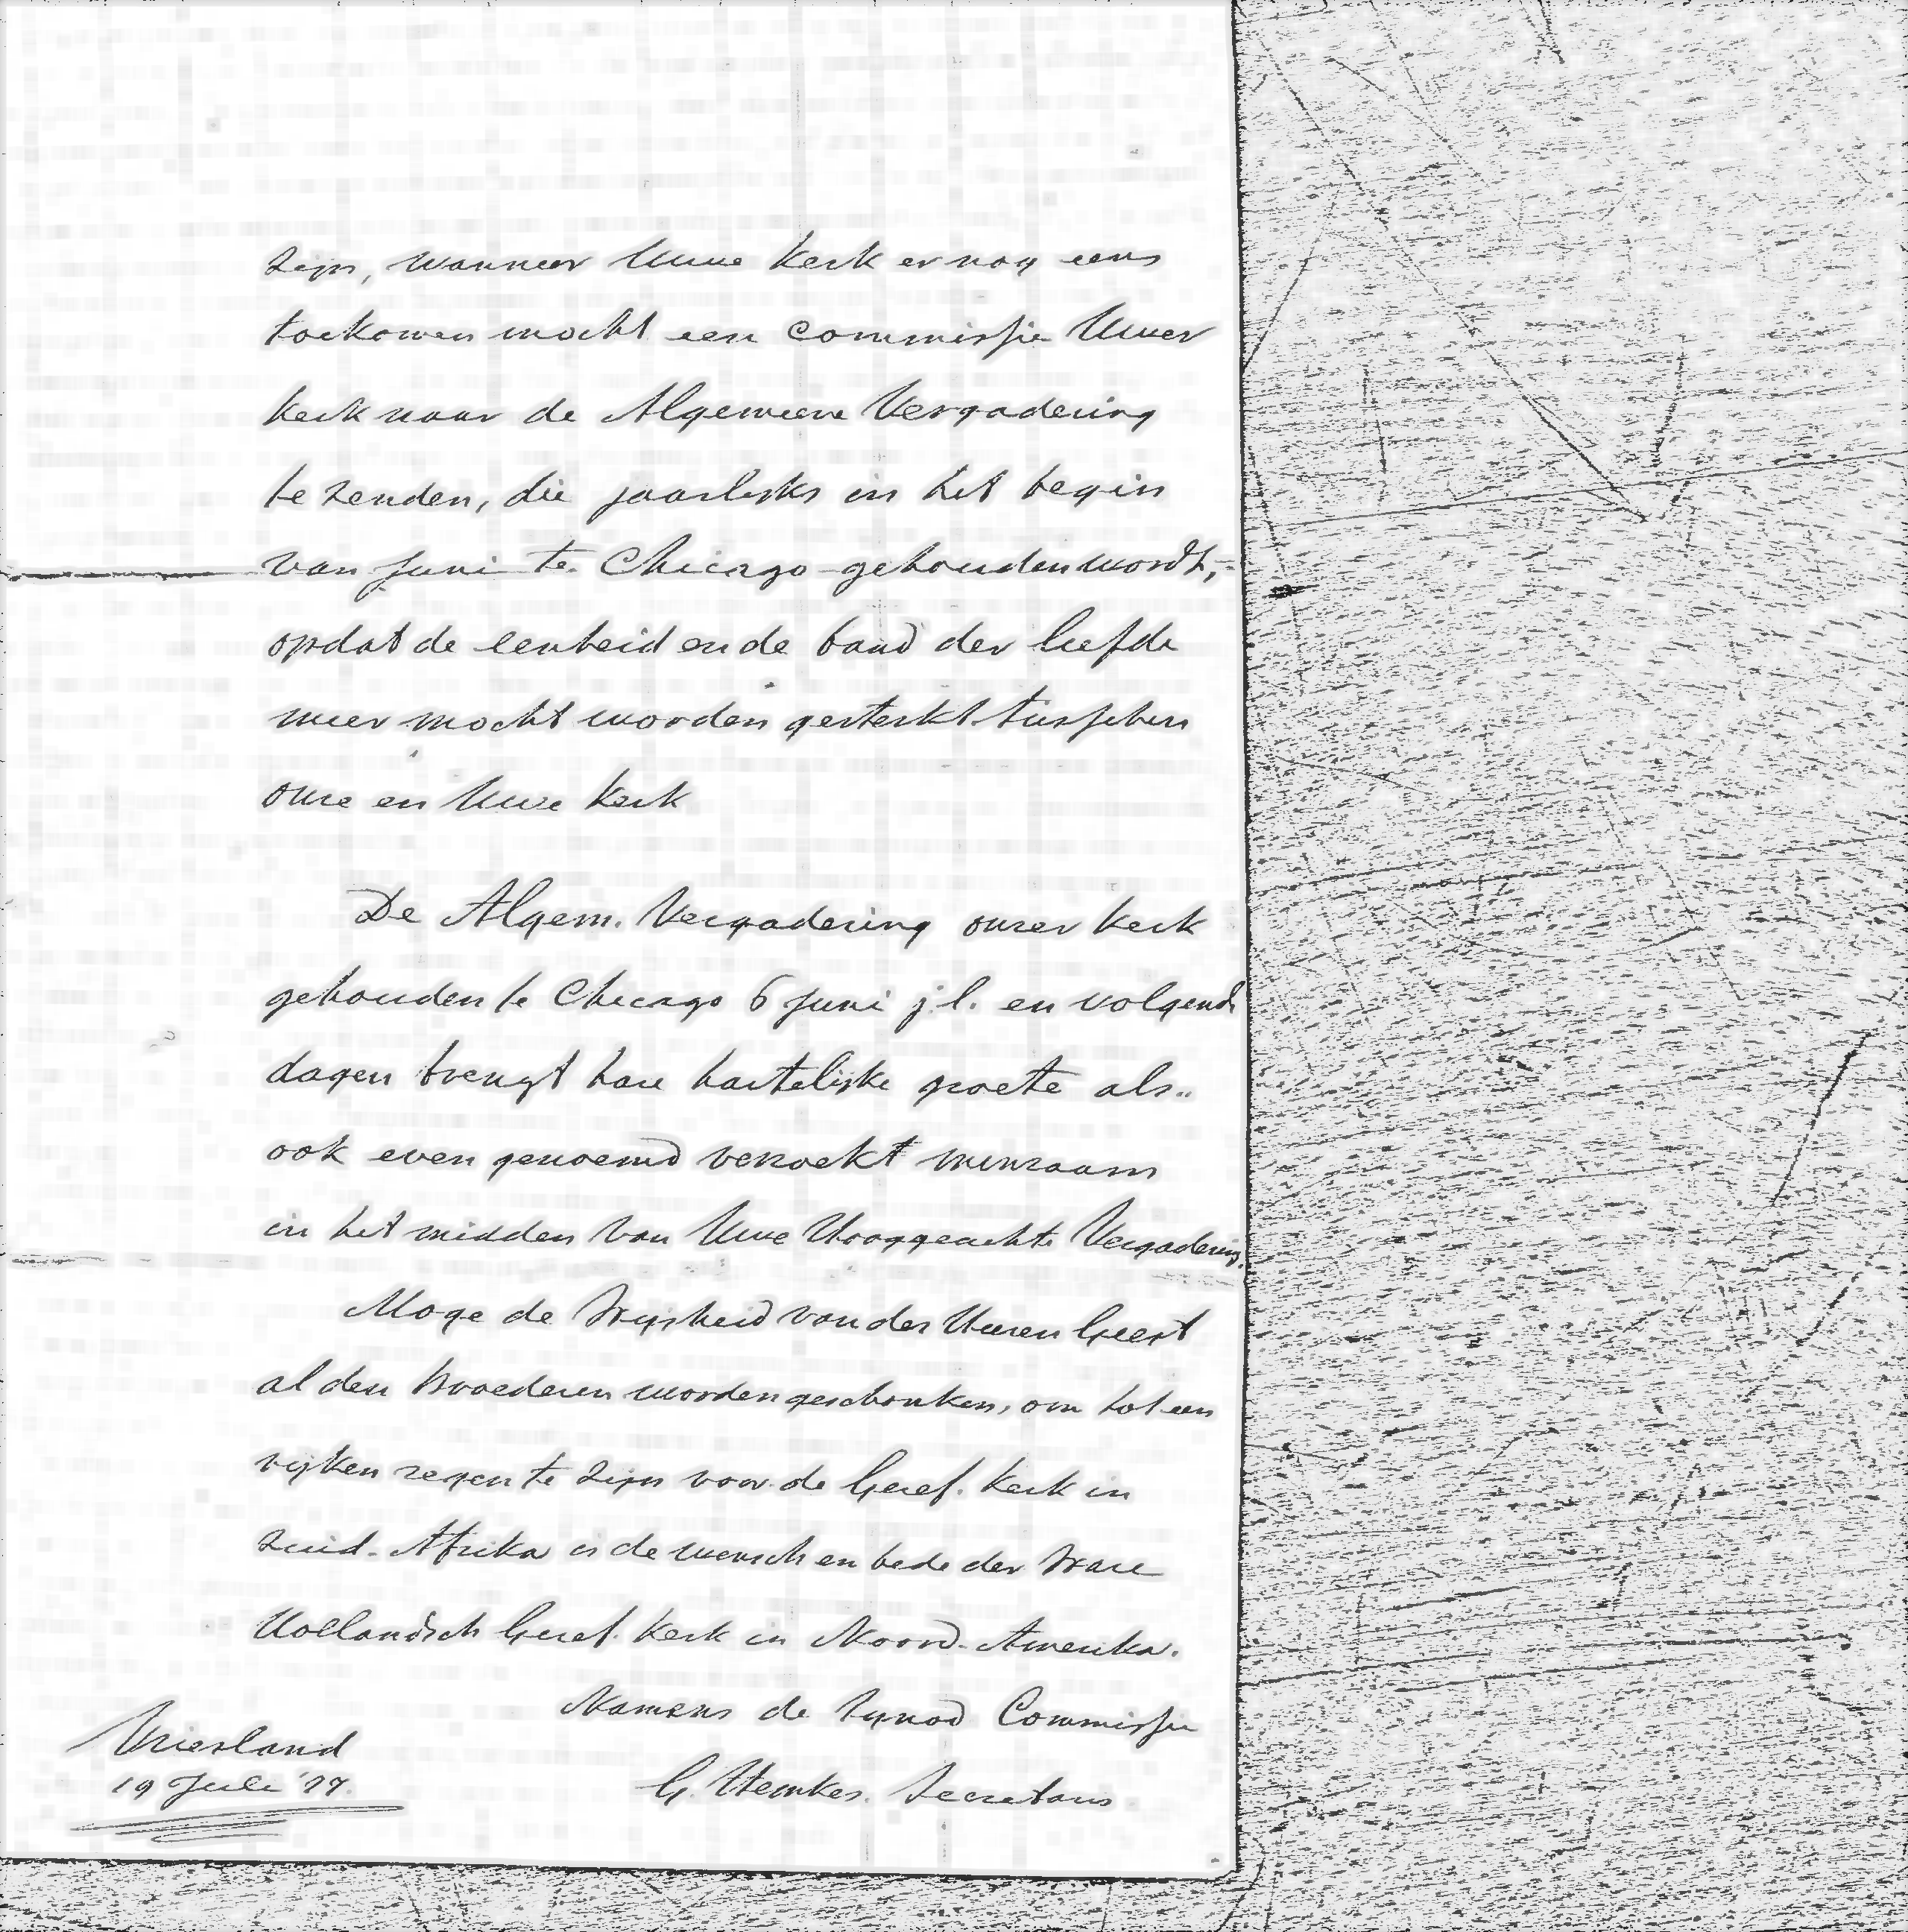 zijn, wanneer Uwe Kerk er nog eens
toekomen mocht een Commissie Uwer
Kerk naar de Algemeene Vergadering
te zenden, die jaarlijks in het begin
van Juni te Chicago gehouden wordt,
opdat de eenheid en de band der liefde
meer mocht worden gesterkt tusschen
onze en Uwe Kerk
De Algem. Vergadering onzer Kerk
gehouden te Chicago 6 Juni j.l. en volgende
dagen brengt hare hartelijke groete als..
ook even genoemd verzoekt minzaam
in het midden van Uwe Hooggeachte Vergadering.
Moge de Wijsheid van des Heeren Geest
al den Broederen worden geschonken, om tot een
rijken zegen te zijn voor de Geref. Kerk in
Zuid-Afrika is de wensch en bede der Ware
Hollandsch Geref. Kerk in Noord-Amerika.
Namens de Synod Commissie
Vriesland
G. Hemkes. Secretaris
19 Juli '77.